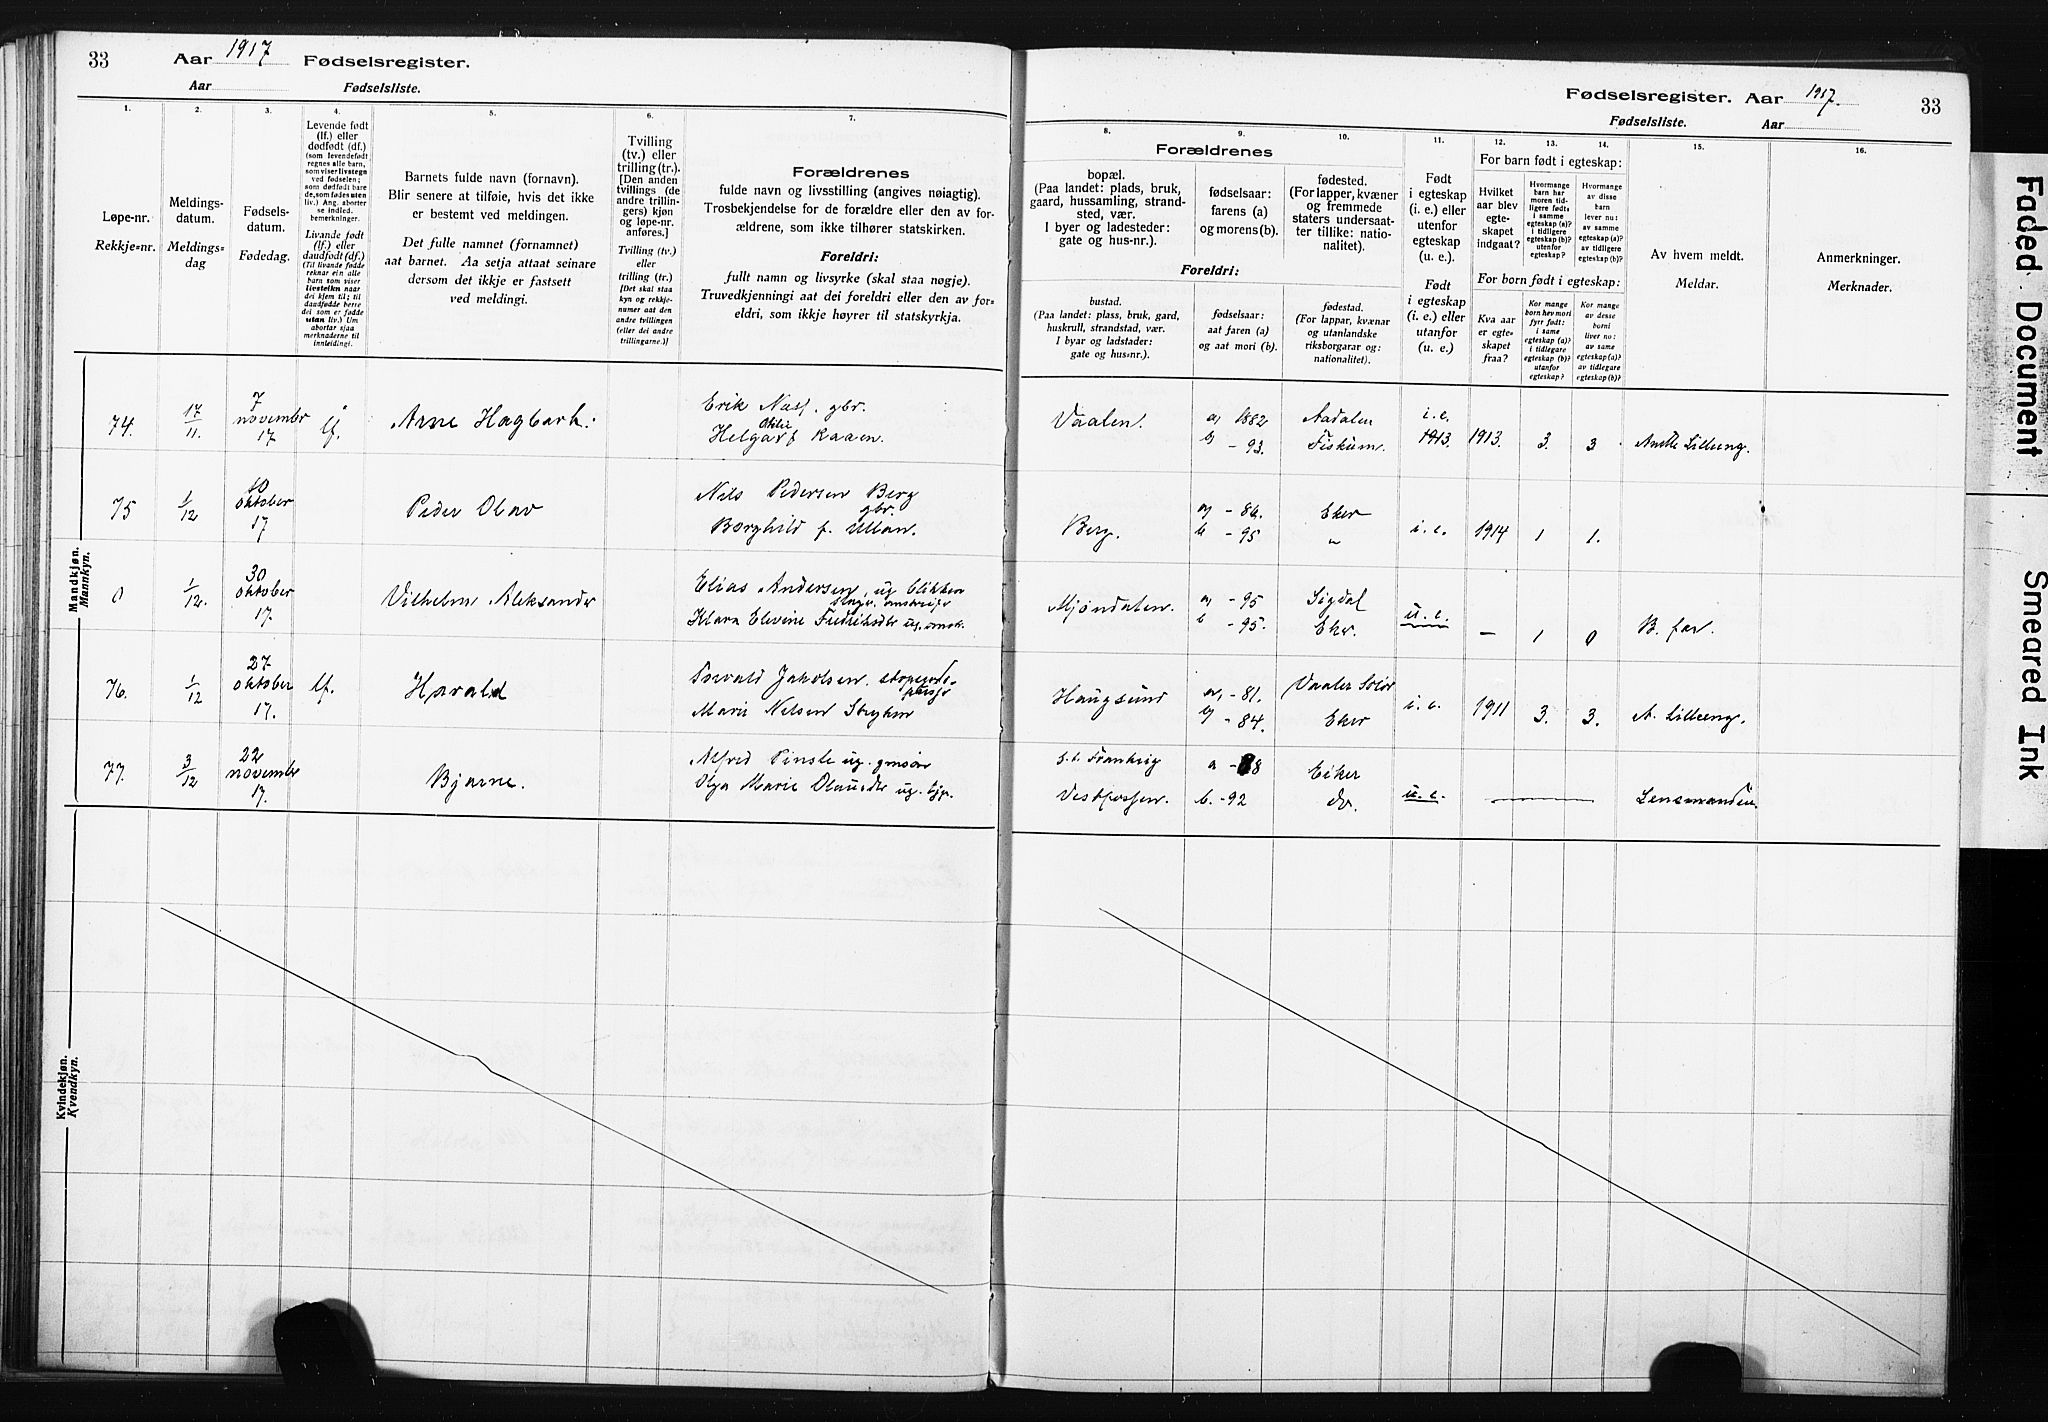 33 Aar 1917 Fødselsregister.
Aar Fødselsliste.
1. 2. 3. 4. 5. 6. 7.
Løpe-nr.
Rekkje=nr.
Meldings-
datum.
Meldings=
dag
Fødsels-
datum.
Fødedag.
Levende født
(lf.) eller
dødfødt (df.)
(som levendefødt
regnes alle barn,
som viser livstegn
ved fødselen;
som dødfødt bare
de, som fødes uten
liv.) Ang. aborter
se indled.
bemerkninger.
Livande født
(lf.) eller
daudfødt (df.)
(Til livande fødde
reknar ein alle
barn som viser
livsteikn naar
dei kjem til; til
daudfødde berre
dei som er fødde
utan liv.) Um
abortar sjaa
merknaderne til
innleidingi.
Barnets fulde navn (fornavn).
Blir senere at tilføie, hvis det ikke
er bestemt ved meldingen.
Det fulle namnet (fornamnet)
aat barnet. Aa setja attaat seinare
dersom det ikkje er fastsett
ved meldingi.
Tvilling
(tv.) eller
trilling (tr.).
[Den anden
tvillings (de
andre trillin-
gers) kjøn
og løpe-nr.
anføres.]
Tvilling (tv.)
eller
trilling (tr.)
[Det skal staa
kyn og rekkje-
numer aat den
andre tvillingen
(eller dei andre
trillingarne.)]
Forældrenes
fulde navn og livsstilling (angives nøiagtig).
Trosbekjendelse for de forældre eller den av for-
ældrene, som ikke tilhører statskirken.
Foreldri:
fullt namn og livsyrke (skal staa nøgje).
Truvedkjenningi aat dei foreldri eller den av for=
eldri, som ikkje høyrer til statskyrkja.
Mandkjøn.
Mannkyn.
74. 17/11. 7 november 17 lf. Arne Hagbart. Erik Næss. gbr.
Helga f. Kaaen.
75 1/12 10 oktober 17 Peder Olav Nils Pedersen Berg
gbr.
Borghild f. Ullan.
0 1/12. 30 oktober 17. Vilhelm Aleksander Elias Andersen, ug
Klara Elevine Fredriksdtr ug.
76. 1/12 27 oktober 17. lf. Harald Torvald Jakobsen,
Marie Nilsen
77. 3/12 22 november 17. Bjarne. Alfred Pinsle ug. gmsøn
Olga Marie Olausdtr ug. tjp.
Kvindekjøn.
Kvendkyn.
Fødselsregister. Aar 1917. 33
Fødselsliste. Aar
8. 9. 10. 11. 12. 13. 14. 15. 16.
Forældrenes
bopæl.
(Paa landet: plads, bruk,
gaard, hussamling, strand-
sted, vær.
I byer og ladesteder:
gate og hus-nr.).
fødselsaar:
farens (a)
og morens (b).
fødested.
(For lapper, kvæner
og fremmede
staters undersaat-
ter tillike: natio-
nalitet).
Foreldri:
bustad.
(Paa landet: plass, bruk, gard,
huskrull, strandstad, vær.
I byar og ladstader:
gate og hus=nr.).
fødselsaar:
aat faren (a)
og aat mori (b).
fødestad.
(For lappar, kvænar
og utanlandske
riksborgarar og:
nationalitet).
Født
i egteskap
(i. e.) eller
utenfor
egteskap
(u. e.).
Født
i egteskap
(i. e.) eller
utanfor
(u. e.)
For barn født i egteskap:
Hvilket
aar blev
egte-
skapet
indgaat?
Hvormange
barn har
moren tid-
ligere født:
i samme
egteskap (a)?
i tidligere
egteskap (b)?
utenfor
egteskap?
Hvormange
av disse
barn
lever nu:
av samme
egteskap (a)?
av tidligere
egteskap (b)?
For barn født i egteskap:
Kva aar
er egte-
skapet
fraa?
Kor mange
born hev mori
fyrr født:
i same
egteskap (a)?
i tidlegare
egteskap (b)?
utanfor
egteskap?
Kor mange
av desse
borni
liver no:
av same
egteskap (a)?
av tidlegare
egteskap (b)?
Av hvem meldt.
Meldar.
Anmerkninger.
Merknader.
Vaalen. a, 1882 Aadalen i. e.
b, - 93. Fiskum. 1913. 1913. 3. 3 Anette Lilleeng.
Berg. a, - 86. Eker i. e. 1914 1 1.
b - 95 "
Mjøndalen. a, - 95 Sigdal u. e.
b - 95. Eker. — 1 0 B. far.
Haugsund a, - 81. Vaaler Solør i. e. 1911 3. 3. A. Lilleeng.
b, - 84. Eker
a - 88 Eiker
Vestfossen. b. - 92 do. u. e. Lensmanden.
Faded Document
Smeared Ink